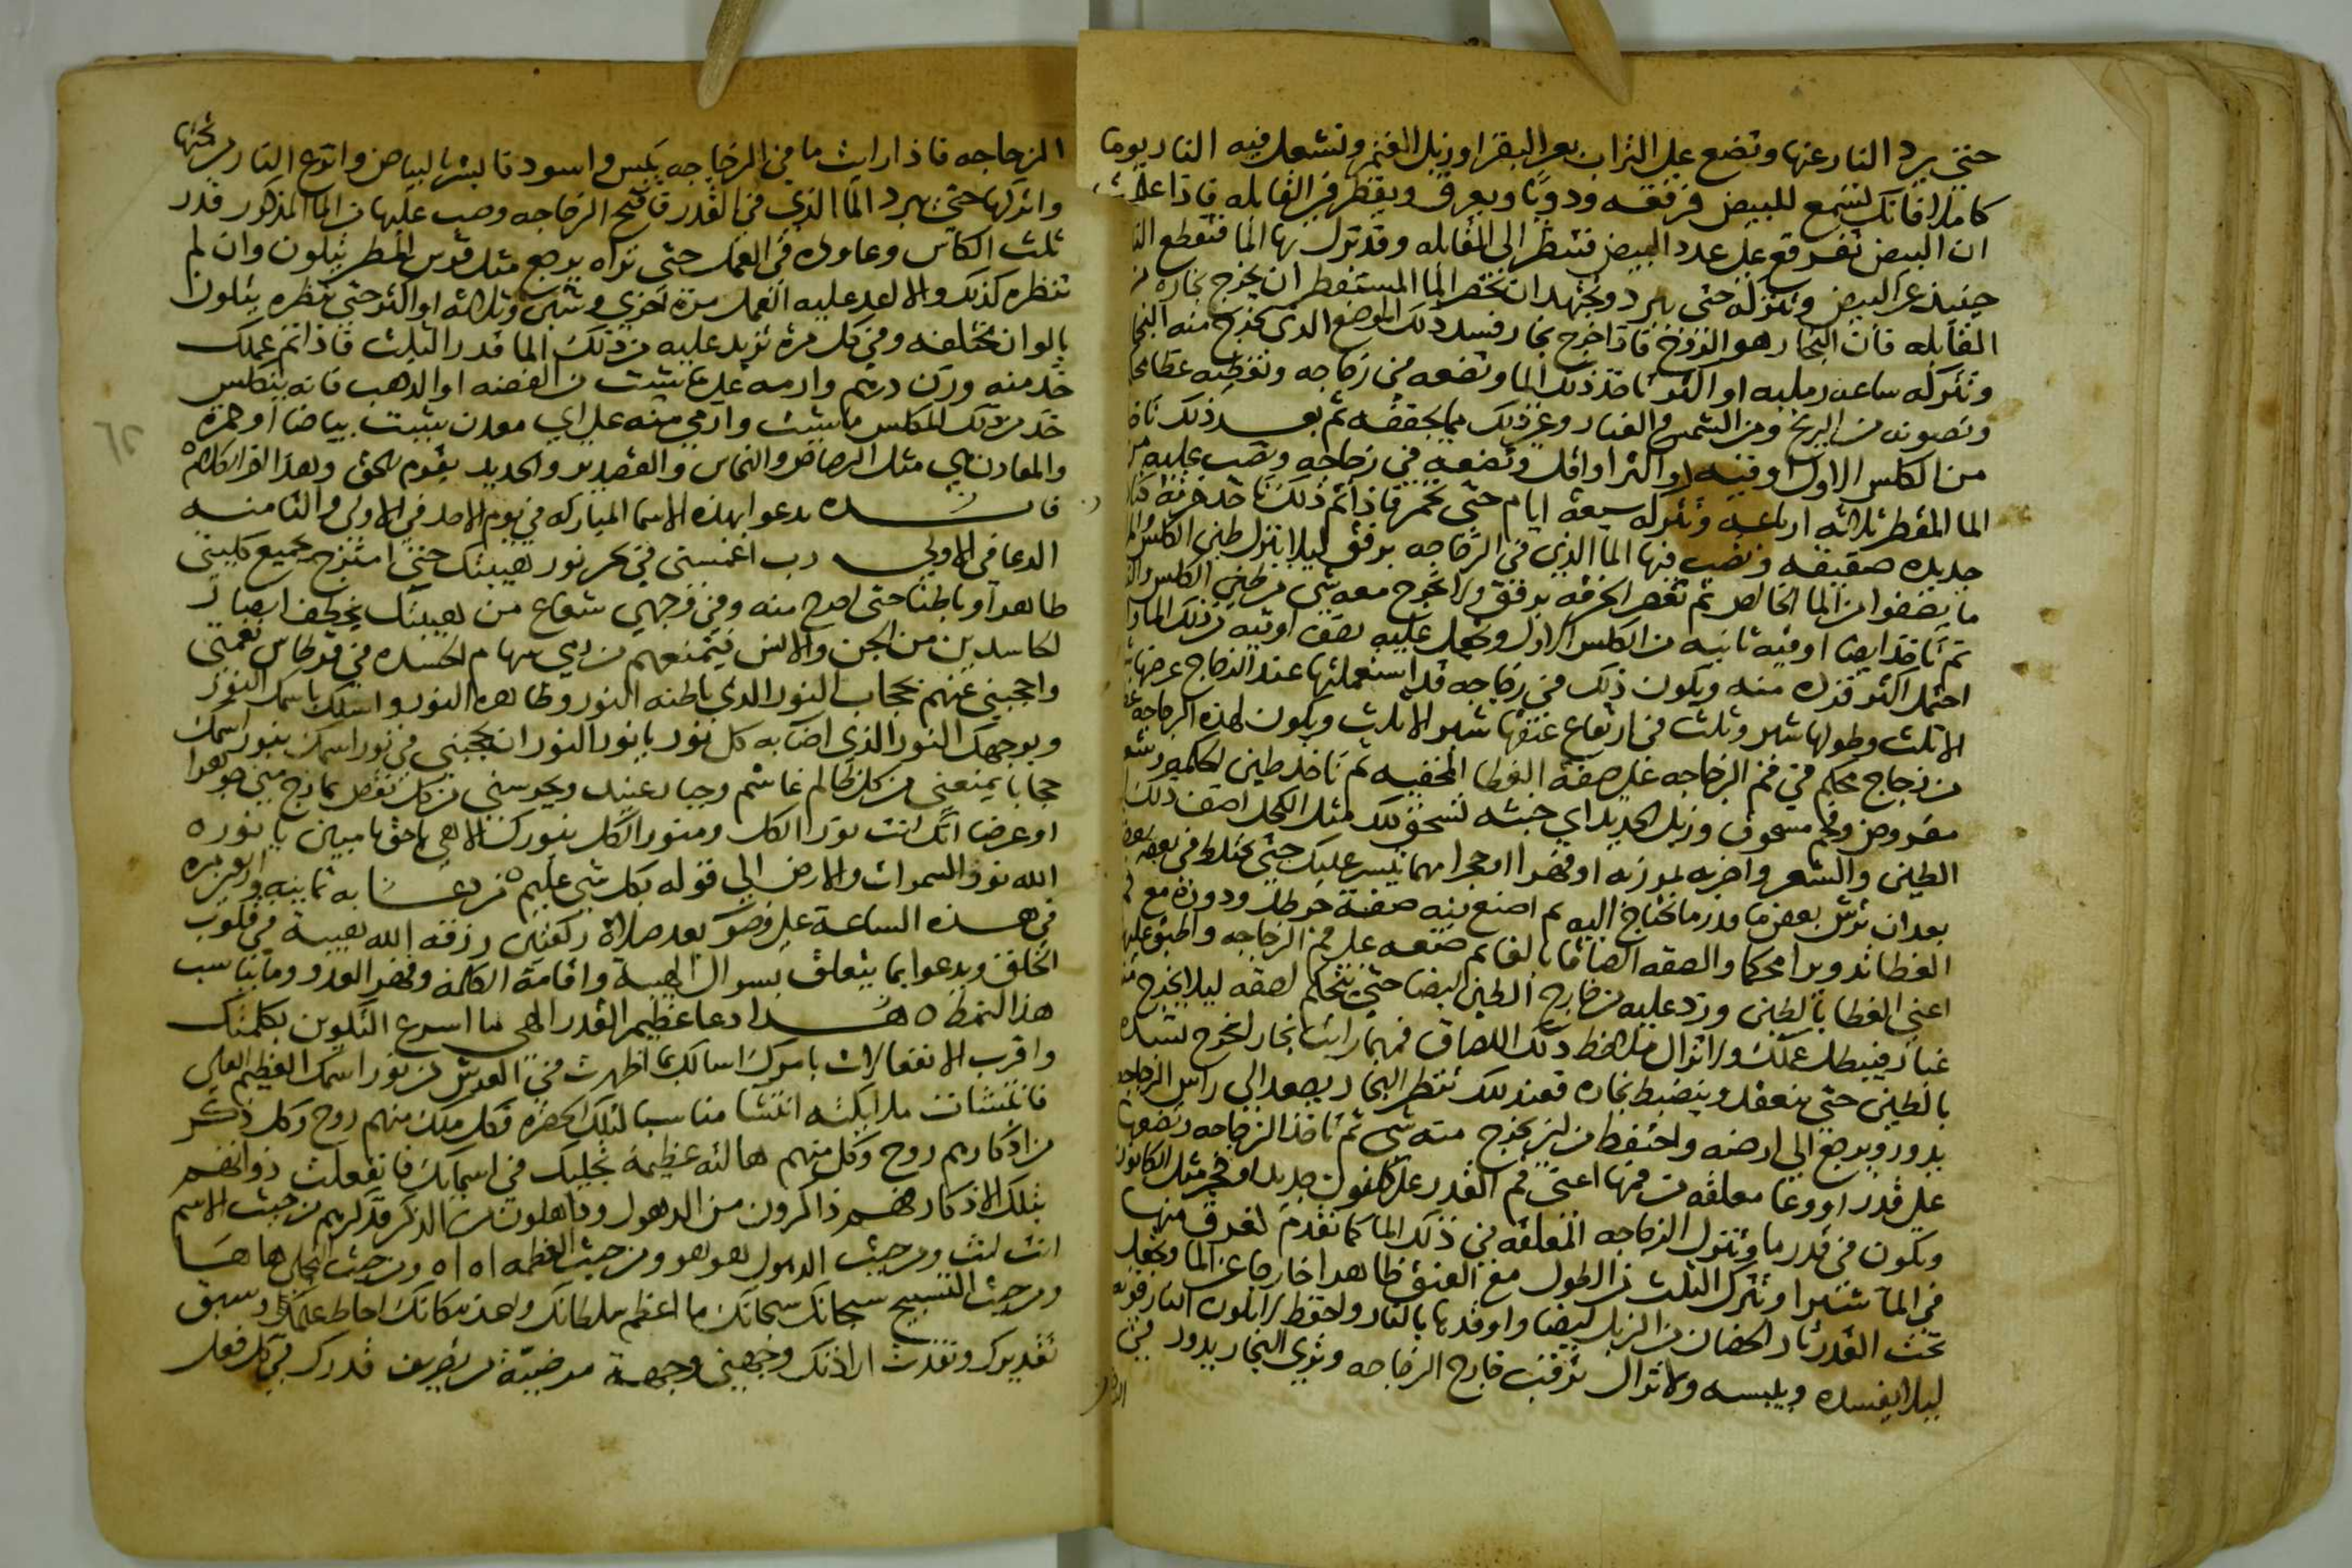 حتي يبرد النار عنها وتضع علي التراب بعر البقر او زبل الغنم وتشعل فيه النار يوما
كاملا فانك تسمع للبيض فرقعه ودويا ويعرق ويقطر في القابله فاذا علمت
ان البيض تفرقع علي عدد البيض فتنظر الي القابله وقد نزل بها الما فتقطع النار
حينيذ عن البيض وتتركه حتي يبرد وتجتهد ان تختم الما المستقطر ان يخرج بخاره من
القابله فان البخار هو الروح فاذا خرج بخار فسد ذلك الموضع الذي يخرج منه البخار
وتتركه ساعه رمليه او اكثر تاخذ ذلك الما وتضعه في زجاجه وتغطيه غطا محكما
وتصونه من الريح ومن الشمس والغبار وغير ذلك مما يجففه ثم بعد ذلك تاخذ
من الكلس الاول اوقيه او اكثر او اقل وتضعه في زجاجه وتصب عليه من
الما المقطر ثلاثه ارباعه وتتركه سبعة ايام حتي يخمر فاذا تم ذلك تاخذ خرقة
جديده صفيقه وتصب فيها الما الذي في الزجاجه برفق ليلا ينزل طين الكلس
ما يصفوا من الما الخالص ثم تعصر الخرقه برفق ولا يخرج معه شي من طين الكلس
ثم تاخذ ايضا اوقيه ثانيه من الكلس الاول وتجعل عليه نصف اوقيه من ذلك الما
احتمل اكثر فزده منه ويكون ذلك في زجاجه قد استعملتها عند الزجاج عرضها
الا ثلث وطولها شبر وثلث في ارتفاع عنقها شبر الا ثلث ويكون لهذه الزجاجه
من زجاج محكم في فم الزجاجه علي صفة الغطا المخفيه ثم تاخذ طين الحكمه وشعر
مقروض وفحم مسحوق وزبل الحديد اي خبثه تسحق ذلك مثل الكحل اضف ذلك
الطين والشعر واضربه بمرزبه او فهرا او حجرا مهما تيسر عليك حتي يختلط في بعضه بعض
بعد ان ترش بعض ما قدر ما تحتاج اليه ثم اصنع منه صفة خرطه ودوره مع فم
الغطا تدويرا محكما والصقه الصاقا بالغا ثم ضعه علي فم الزجاجه واطبق عليها
اعني الغطا بالطين وزد عليه من خارج الطين ايضا حتي يتحكم لصقه ليلا يخرج منه
غبار فيبطل عملك ولا تزال ملاحظ ذلك اللصاق فمهما رايت بخار يخرج تشده
بالطين حتي ينعقد وينضبط بخاره فعند ذلك تنظر البخار يصعد الي راس الزجاجه
يدور ويرجع الي ارضه واحتفظ من ان يخرج منه شي ثم تاخذ الزجاجه وتضعها
علي قدر او وعا معلقه من فمها اعني فم القدر علي كانون جديد او فخر مثل الكانون
ويكون في قدر ما وتنزل الزجاجه المعلقه في ذلك الما كما تقدم لغرق منها
في الما شبرا وتترك الثلث من الطول مع العنق ظاهرا خارجا عن الما وتجعل
تحت القدر نار الحضان من الزبل ايضا واوقدها بالنار واحتفظ لا تكون النار قويه
ليلا يفسده ويلبسه ولا تزال ترقب خارج الزجاجه وتري البخار يدور في
الزجاجه فاذا رايت ما في الزجاجه يبس واسود فابشر بالبياض وانزع النار من تحتها
واتركها حتي يبرد الما الذي في القدر فافتح الزجاجه وصب عليها من الما المذكور قدر
ثلث الكاس وعاوده في العمل حتي تراه يرجع مثل قوس المطر يتلون وان لم
تنظره كذلك والا اعد عليه العمل مرة اخري ومرتين وثلاثه او اكثر حتي تنظره يتلون
بالوان مختلفه وفي كل مرة تزيد عليه من ذلك الما قدر الثلث فاذا تم عملك
خذ منه وزن درهم وارمه علي ما شيت من الفضه او الذهب فانه يتكلس
خذ من ذلك المكلس ما شيت وارمي منه علي اي معدن شيت بياضا او حمرة
والمعادن هي مثل الرصاص والنحاس والقصدير والحديد يقوم بالحق وهذا اخر الكلام
فايدة يدعوا بهذه الاسما المباركه في يوم الاحد في الاولي والثامنه
الدعا في الاولي رب اغمسني في بحر نور هيبتك حتي امتزج بجميع كليتي
ظاهرا وباطنا حتي اخرج منه وفي وجهي شعاع من هيبتك يخطف ابصار
الحاسدين من الجن والانس فيمنعهم من رمي سهام الحسده في قرطاس نعمتي
واحجبني عنهم بحجاب النور الذي باطنه النور وظاهره النور واسلك باسمك النور
وبوجهك النور الذي اضا به كل نور يا نور النور ان تحجبني في نور اسمك بنور اسمك
حجابا يمنعني من كل ظالم غاشم وجبار عنيد ويحرسني من كل نقص يمازج مني جوهرا
او عرضا انك انت نور الكل ومنور الكل بنورك الاهي يا حق يا مبين يا نور ه
الله نور السموات والارض الي قوله بكل شي عليم ه من دعا به ثمانيه واربعين مره
في هذه الساعة علي وضو بعد صلاة ركعتين رزقه الله هيبة في قلوب
الخلق ويدعوا بما يتعلق بسوال الهيبة واقامة الكلمة وقهر العدو وما يناسب
هذا النمط ه هذا دعا عظيم القدر الهي ما اسرع التكوين بكلمتك
واقرب الانفعالات بامرك اسالك بما اظهرت في العرش من نور اسمك العظيم العلي
فانتشات ملايكته انتشا مناسبا لتلك الحضرة فكل ملك منهم روح وكل ذكر
من اذكارهم روح وكل منهم هالته عظيمة تجليك في اسمايك فانفعلت ذواتهم
بتلك الاذكار فهم ذاكرون من الذهول وذاهلون من الذكر فذكرهم من حيث الاسم
انت انت ومن حيث الذهول هو هو ومن حيث العظمه اه اه ومن حيث التجلي ها ها
ومن حيث التسبيح سبحانك سبحانك ما اعظم سلطانك واعز مكانك احاط علمك وسبق
تقديرك ونفذت ارادتك وجهني وجهة مرضية من تصريف قدرك في كل فعل